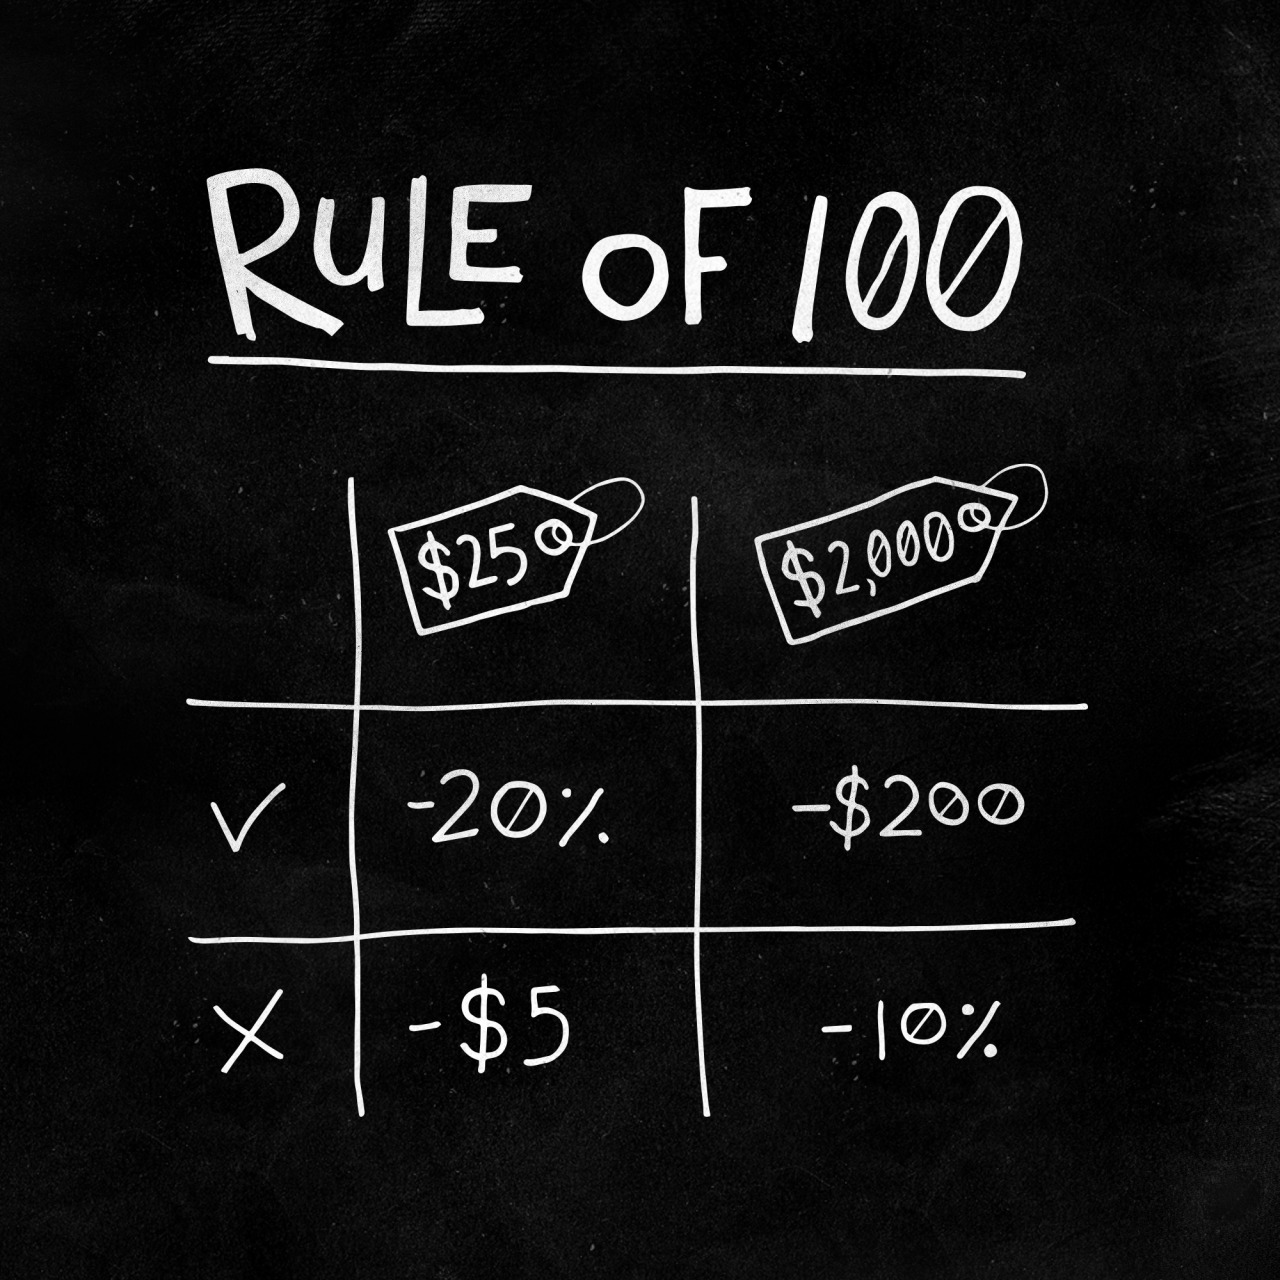 RULE OF 100
$25 $2,000
✓ -20% -$200
X -$5 -10%